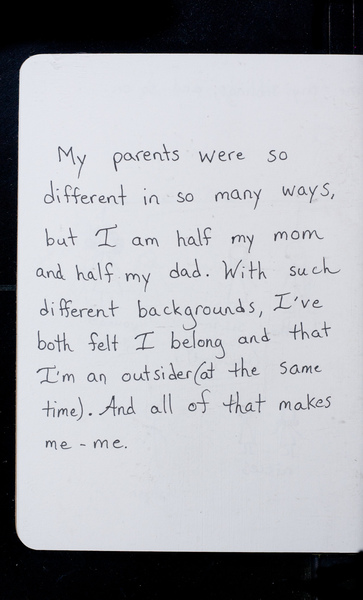 My parents were so
different in so many ways,
but I am half my mom
and half my dad. With such
different backgrounds, I've
both felt I belong and that
I'm an outsider (at the same
time). And all of that makes
me - me.